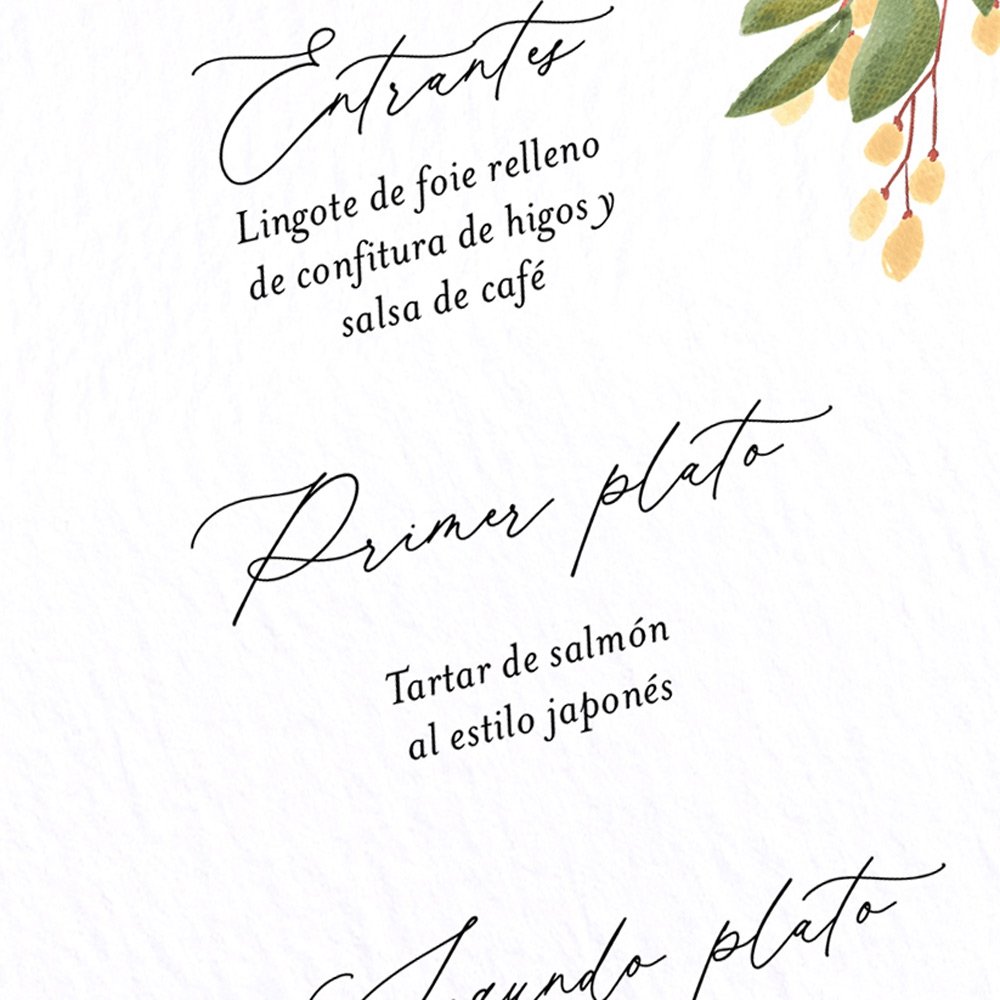 Entrantes
Lingote de foie relleno
de confitura de higos y
salsa de café
Primer plato
Tartar de salmón
al estilo japonés
Segundo plato